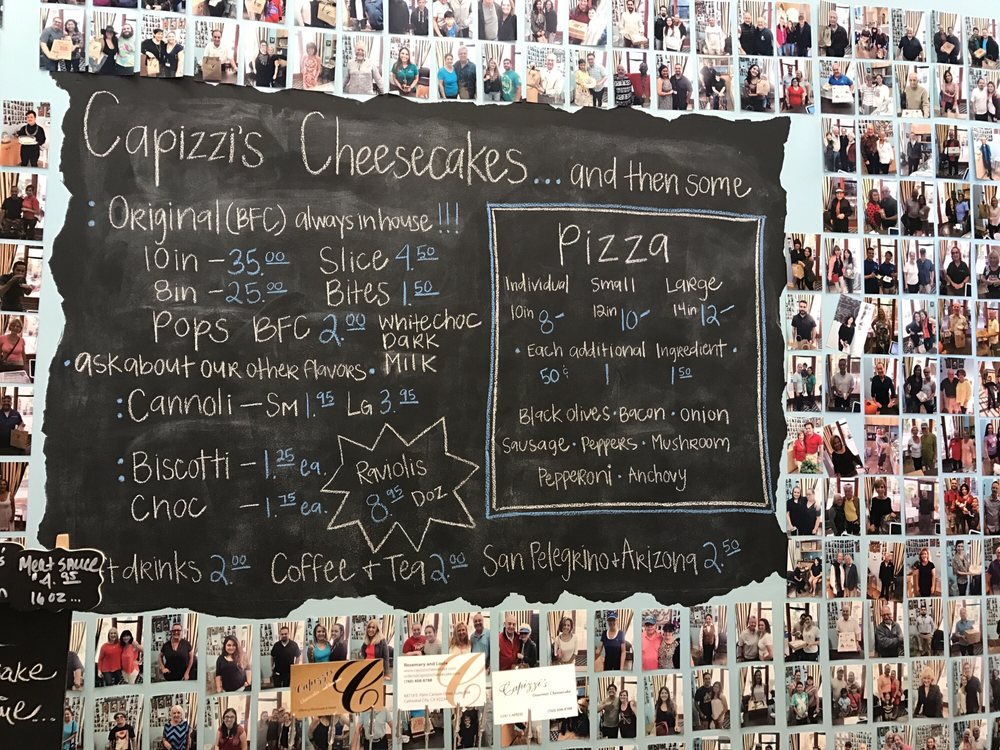 Capizzi's Cheesecakes... and then some
: Original (BFC) always in house !!!
10in - 35.00 Slice 4.50
8in - 25.00 Bites 1.50
Pops BFC 2.00 White Choc
Dark
Milk
• ask about our other flavors •
: Cannoli - Sm 1.95 Lg 3.95
: Biscotti - 1.25 ea.
Choc - 1.75 ea.
Raviolis
8.95 Doz
t drinks 2.00 Coffee + Tea 2.00 San Pelegrino + Arizona 2.50
Pizza
Individual Small Large
10in 8- 12in 10- 14in 12-
• Each additional Ingredient •
50¢ 1 1.50
Black olives • Bacon • onion
Sausage • Peppers • Mushroom
Pepperoni • Anchovy
Meat Sauce
$4.95
16 oz...
ake
Capizzi's
C
Rosemary and Louis
(760) 808-8788
Capizzi's
Gourmet Cheesecake